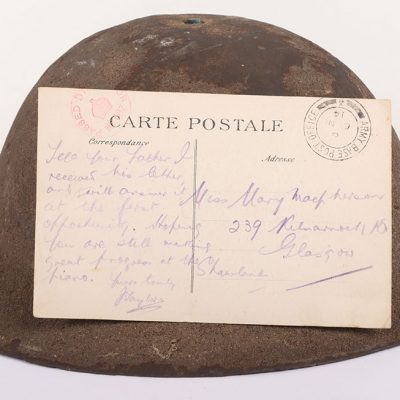 PASSED
CARTE POSTALE
Correspondance
Adresse
ARMY BASE POST OFFICE
14
Tell your father I
received his letter
and will answer it
at the first
opportunity. Hoping
you are still making
great progress at the
piano.
Yours truly
Miss Mary Macpherson
239 Kilmarnock Rd
Glasgow